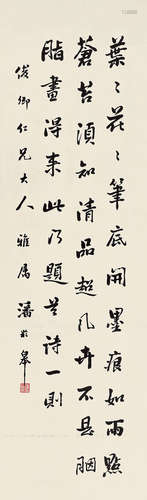 葉〻花〻筆底開墨痕如雨點
蒼苔須知清品超凡卉不是胭
脂畫得来此乃題詩一則
俊卿仁兄大人雅屬潘齡皋